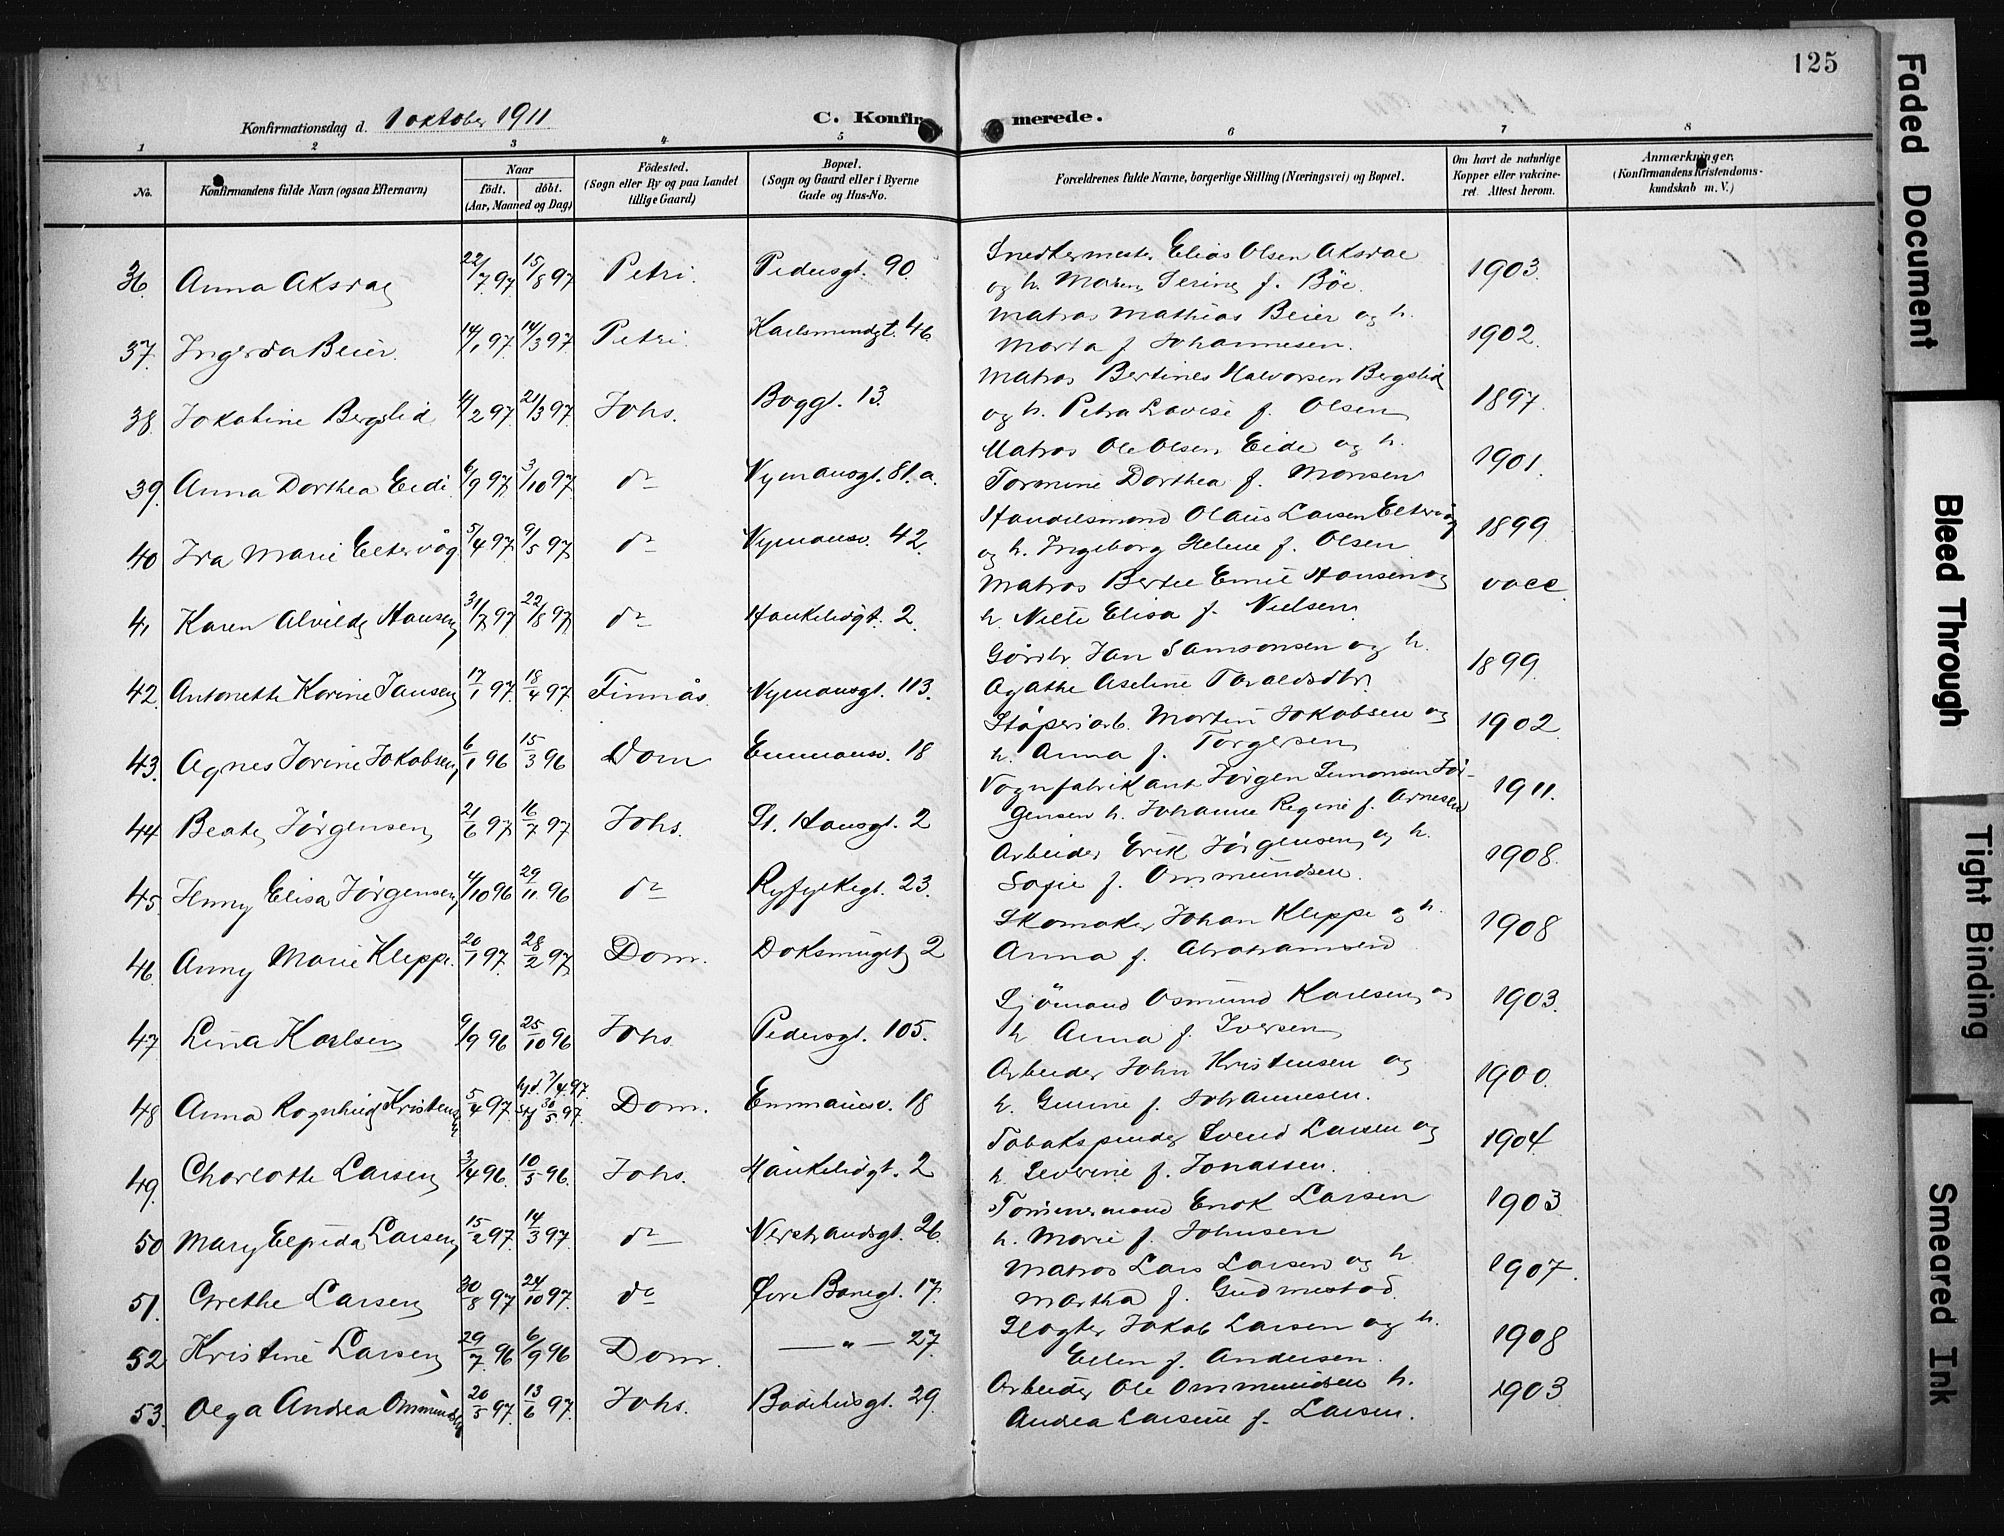 125
Konfirmationsdag d. 1 oktober 1911 C. Konfirmerede.
1 2 3 4 5 6 7 8
No. Konfirmandens fulde Navn (ogsaa Efternavn) Naar födt. döbt. (Aar, Maaned og Dag) Födested. (Sogn eller By og paa Landet tillige Gaard) Bopæl. (Sogn og Gaard eller i Byerne Gade og Hus-No. Forældrenes fulde Navne, borgerlige Stilling (Næringsvei) og Bopæl. Om havt de naturlige Kopper eller vakcineret. Attest herom. Anmærkninger. (Konfirmandens Kristendomskundskab m. V.)
36. Anna Aksdal 22/7 97. 15/8 97 Petri. Pedersgt. 90. Snedkermester Elias Olsen Aksdal 1903.
og h. Maren Serine f. Böe.
37. Ingerda Beier. 14/1 97. 14/3 97. Petri. Karlsmindgt. 46 Matros Mathias Beier og h. 1902.
Marta f Johannesen.
38. Jokabine Bergslid 4/2 97. 21/3 97. Johs. Boggt. 13. Matros Bertines Halvorsen Bergslid 1897.
og h. Petra Lovise f. Olsen
39. Anna Dorthea Eide 6/9 97. 3/10 97. do Nymansgt. 81.a. Matros Ole Olsen Eide og h. 1901.
Tormine Dorthea f. Monsen
40 Ida Marie Eltervåg 5/4 97. 9/5 97. do Nymansv. 42. Handelsmand Olaus Larsen Eltervåg 1899.
og h. Ingeborg Helene f. Olsen
41 Karen Alvilde Hansen 31/7 97 22/8 97 do Haukelidgt. 2. Matros Bertel Emil Hansen og vacc.
h. Nille Elisa f. Nielsen.
42. Antonette Karine Jansen 17/1 97. 18/4 97. Finnås. Nymansgt. 113. Gårdbr. Jan Samsonsen og h. 1899
Agathe Aseline Taraldsdtr.
43. Agnes Jorine Jakobsen 6/1 96 15/3 96 Dom Emmausv. 18 Støperiarb. Martin Jakobsen og 1902
h. Anna f. Torgersen
44. Beate Jörgensen 21/6 97 16/7 97 Johs. St. Hansgt. 2 Vognfabrikant Jörgen Simonsen Jör- 1911.
gensen h. Johanne Regine f. Arnesen
45. Jenny Elisa Jörgensen 4/10 96 29/11 96 do Ryfylkegt. 23. Arbeider Erik Jörgensen og h. 1908.
Sofie f. Ommundsen.
46. Anny Marie Kleppe. 20/1 97. 28/2 97 Dom. Doksmuget 2 Skomaker Johan Kleppe og h. 1908
Anna f. Abrahamsen
47 Lina Karlsen 9/9 96 25/10 96 Johs. Pedersgt. 105. Sjömand Osmund Karlsen og 1903.
h Anna f. Iversen
48 Anna Ragnhild Kristensen 5/4 97. hjd. 7/4 97. st 30/5 97. Dom. Emmausv. 18 Arbeider John Kristensen og 1900.
h. Gurine f. Johannesen.
49. Charlotte Larsen 3/4 96. 10/5 96. Johs. Haukelidgt. 2 Tobakspinder Svend Larsen og 1904
h. Severine f. Jonassen.
50 Mary Elfrida Larsen 15/2 97. 14/3 97. do Verstrandsgt. 26. Tömmermand Enok Larsen 1903
h. Marie f. Johnsen
51. Grethe Larsen 30/8 97 24/10 97. do Øvre Banegt. 17. Matros Lars Larsen og h 1907.
Martha f. Gudmestad.
52. Kristine Larsen 29/7 96 6/9 96 Dom. — " — 27. Slagter Jakob Larsen og h. 1908
Ellen f. Andersen.
53. Olga Andrea Ommundsen 20/5 97. 13/6 97. Johs. Badehusgt. 29. Arbeider Ole Ommundsen h. 1903
Andrea Larsine f. Larsen.
Faded Document
Bleed Through
Tight Binding
Smeared Ink